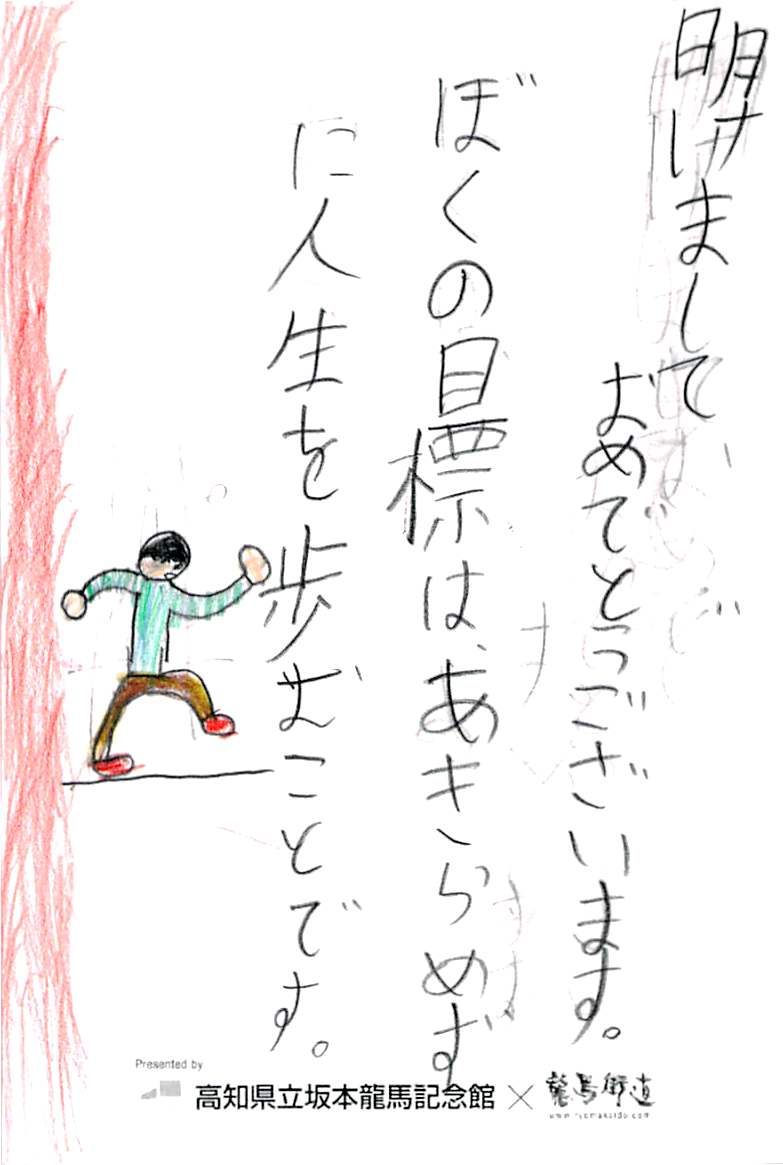 明けまして
おめでとうございます。
ぼくの目標は、あきらめず
に人生を歩むことです。
Presented by
高知県立坂本龍馬記念館×龍馬街道
www.ryomakaido.com